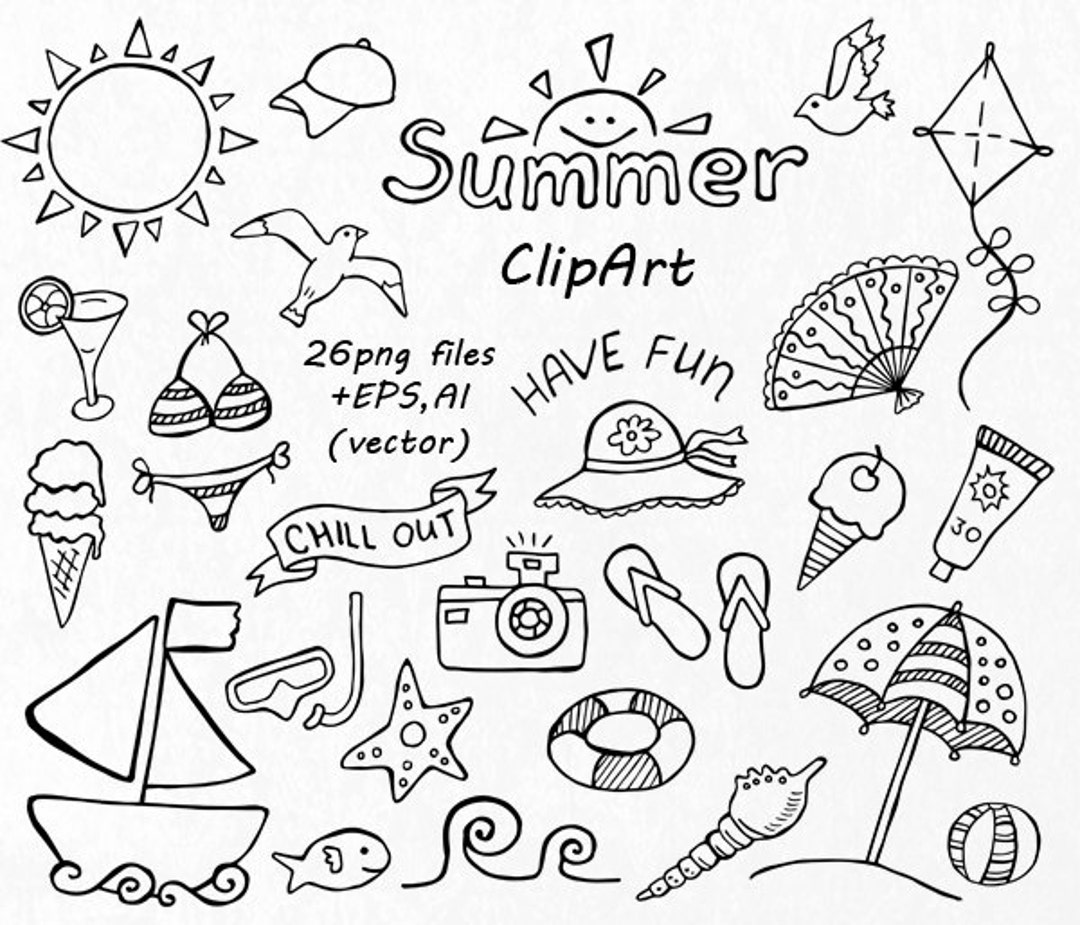 Summer
ClipArt
26png files
+EPS,AI
(vector)
HAVE FUN
CHILL OUT
30